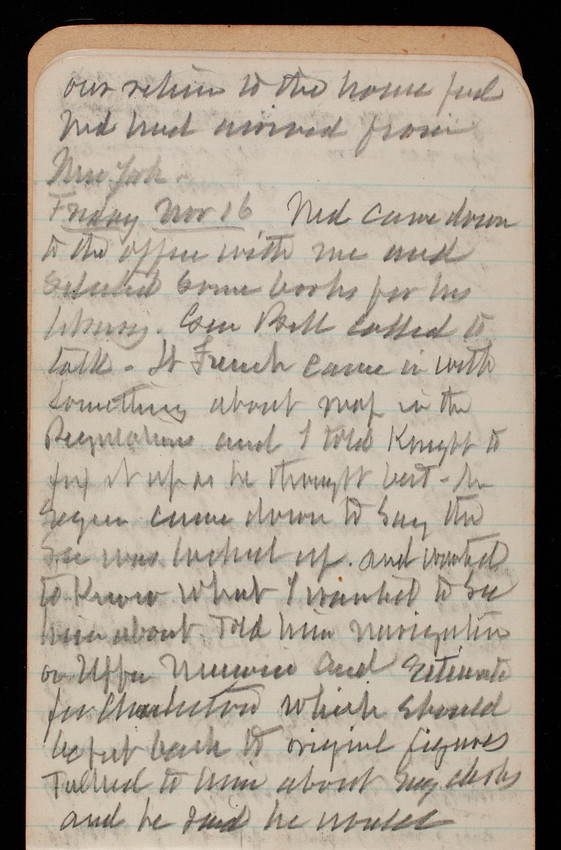 our return to the house found
Ned had arrived from
New York.
Friday Nov 16 Ned came down
to the office with me and
selected some books for his
library. Gen Bell called to
talk. Lt French came in with
something about map in the
Regulations and I told Knight to
fix it up as he thought best -
came down to say the
Sec was locked up. and wanted
to know what I wanted to see
him about. Told him navigation
on Upper Missouri and Estimate
for Charleston which should
be put back to original figures
Talked to him about my clerks
and he said he would